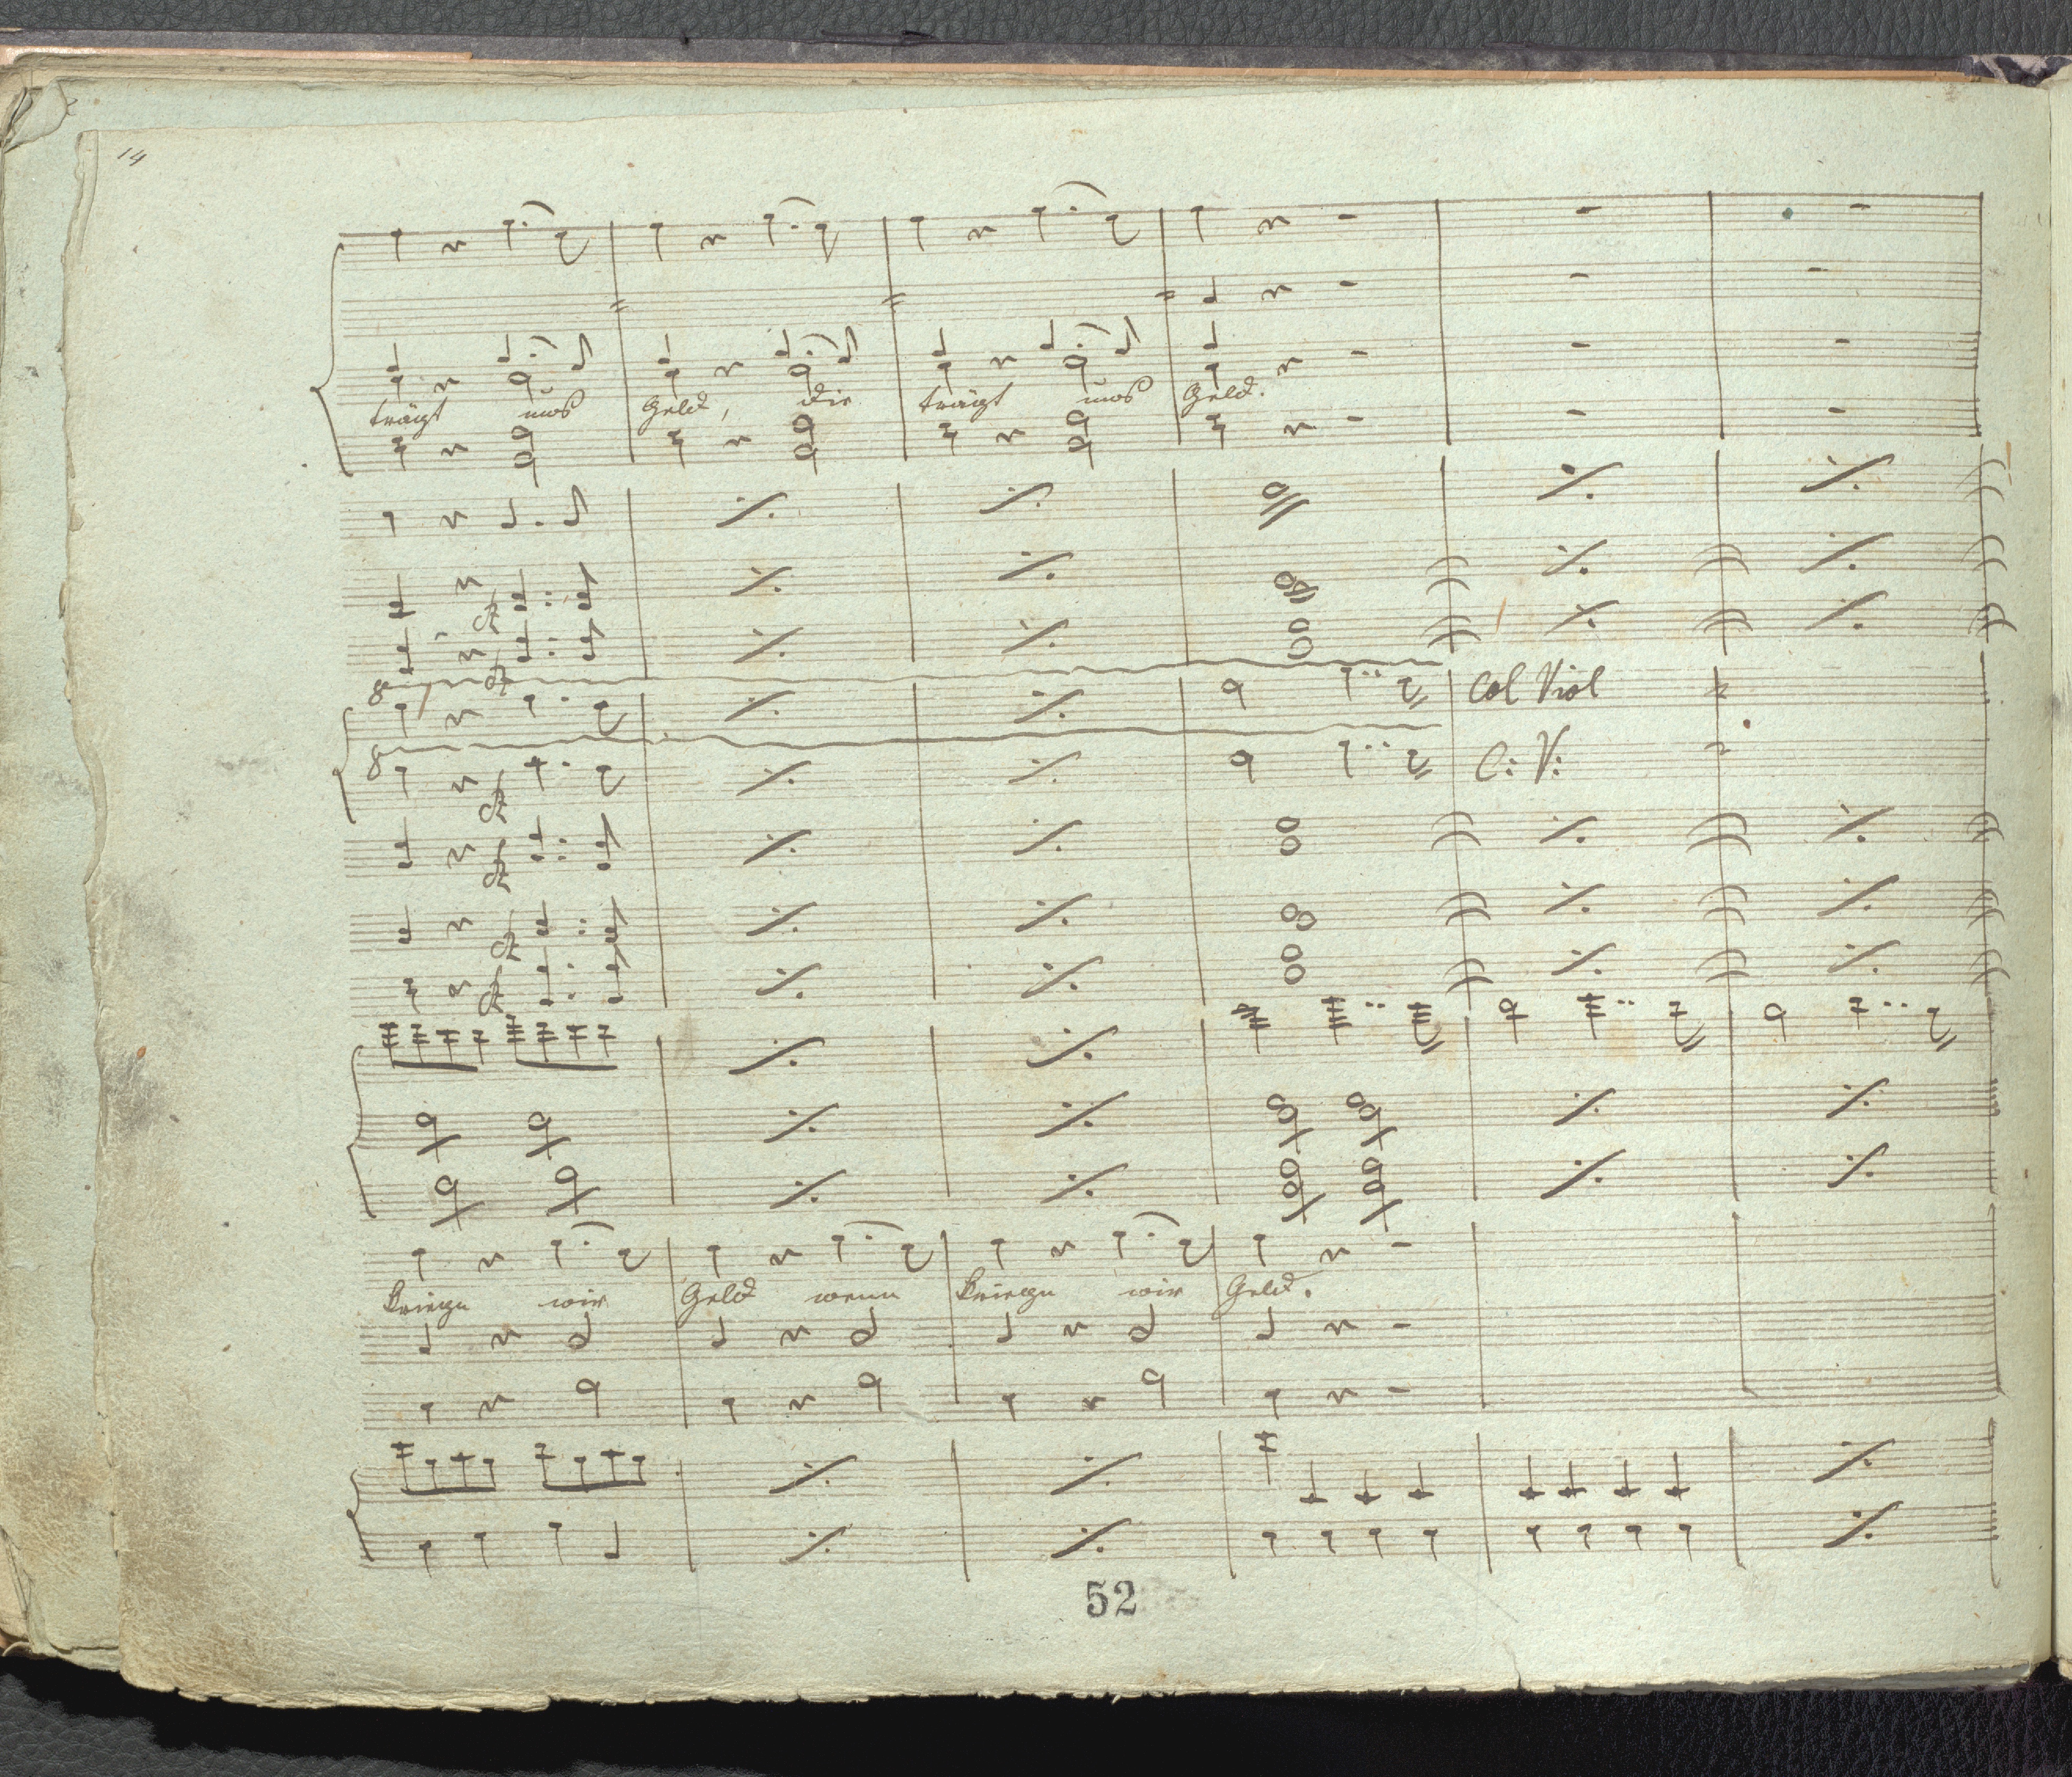 14
trägt uns Geld, die trägt uns Geld.
8
col Viol
8
C: V:
kriegn wir Geld wenn kriegn wir Geld.
52